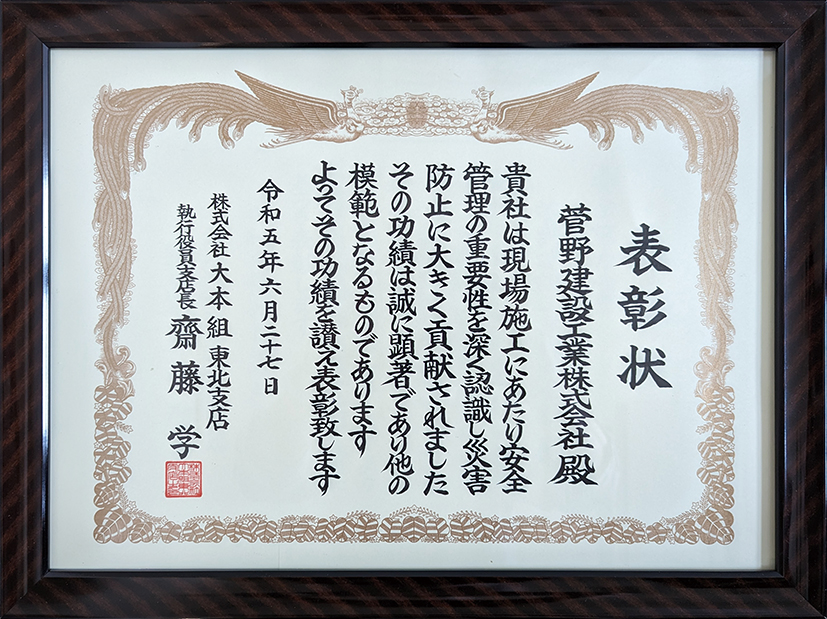 表彰状
菅野建設工業株式会社 殿
貴社は現場施工にあたり安全
管理の重要性を深く認識し災害
防止に大きく貢献されました
その功績は誠に顕著であり他の
模範となるものであります
よってその功績を讃え表彰致します
令和五年六月二十七日
株式会社 大本組 東北支店
執行役員支店長 齋藤 学